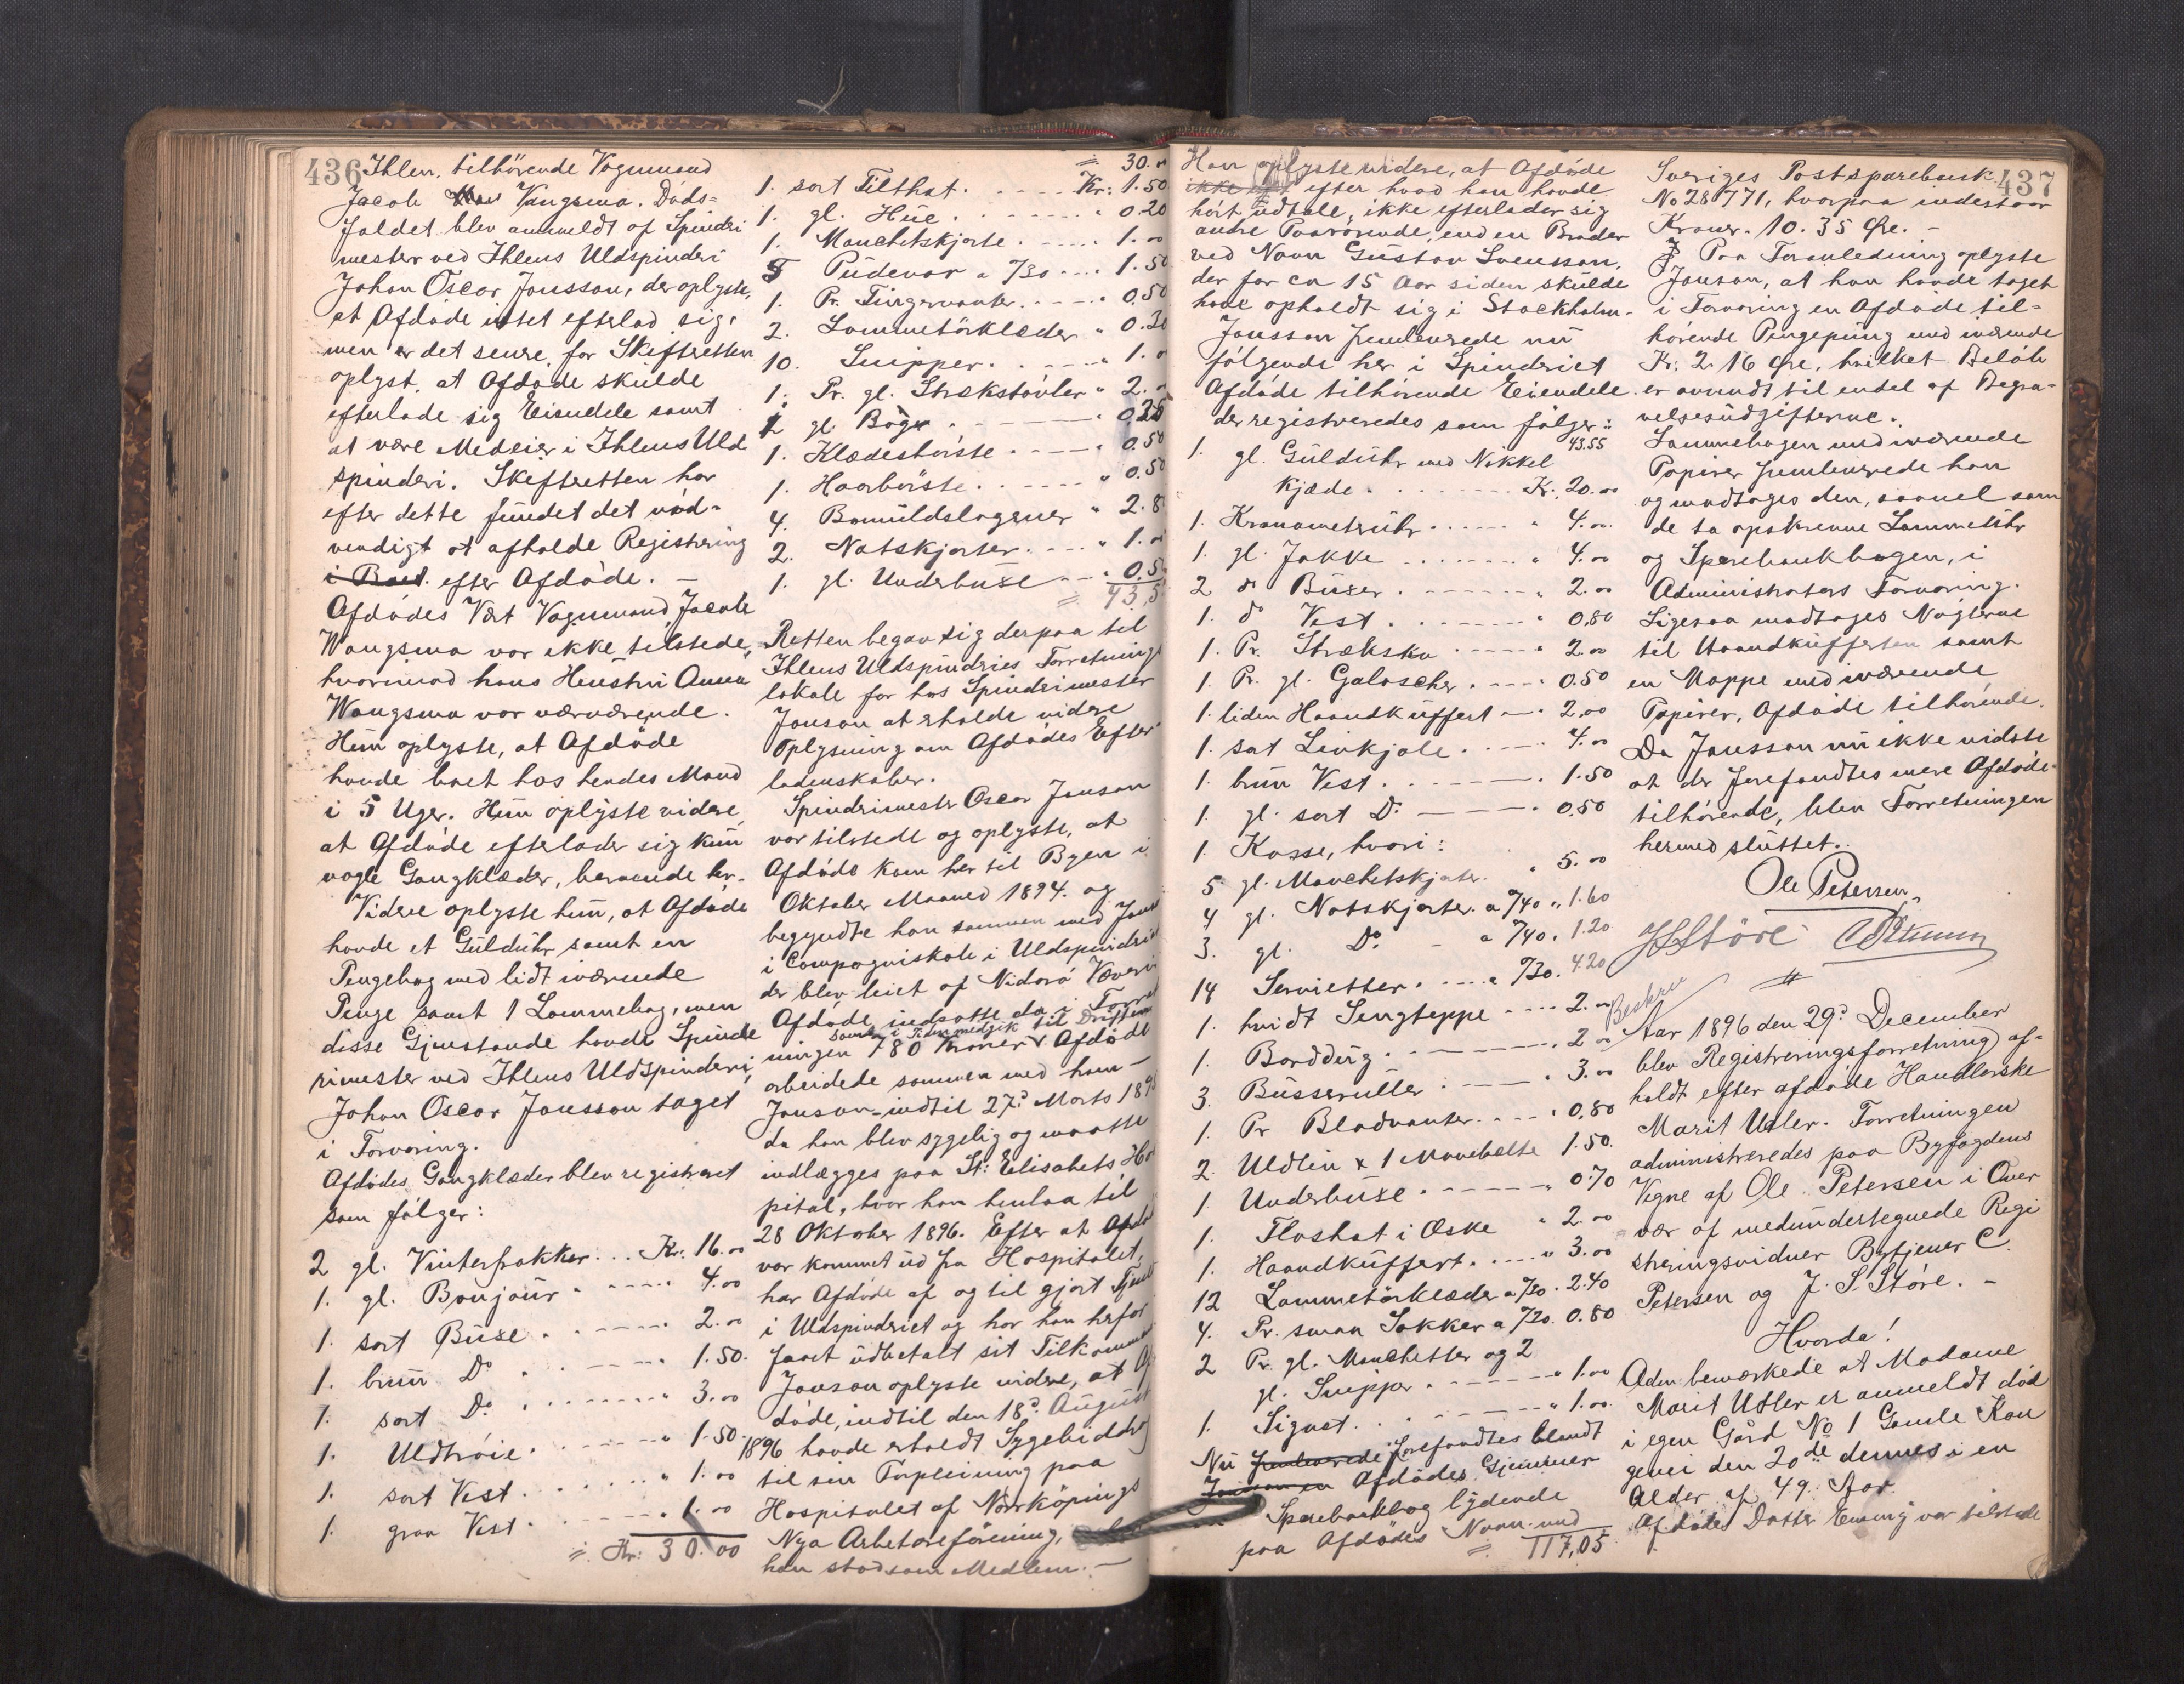 436
Ihlen, tilhörende Vognmand
Jacob Vangsmo. Döds=
faldet blev anmeldt af Spinderi
mester ved Ihlens Uldspinderi
Johan Oscar Jonsson, der oplyste,
at Afdöde intet efterlod sig,
men er det senere for Skifteretten
oplyst, at Afdöde skulde
efterlade sig Eiendele samt
at være Medeier i Ihlens Uld
spinderi. Skifteretten har
efter dette fundet det nöd=
vendigt at afholde Registrering
i Boet efter Afdöde. —
Afdödes Vært Vognmand Jacob
Wangsmo var ikke tilstede,
hvorimod hans Hustru Anna
Wangsmo var nærværende.
Hun oplyste, at Afdöde
havde boet hos hendes Mand
i 5 Uger. Hun oplyste videre
at Afdöde efterlader sig kun
nogle Gangklæder, beroende her.
Videre oplyste hun, at Afdöde
havde et Gulduhr samt en
Pengebog med lidt iværende
Penge samt 1 Lommebog, men
disse Gjenstande havde Spinde
rimester ved Ihlens Uldspinderi,
Johan Oscar Jonsson taget
i Forvaring.
Afdödes Gangklæder blev registreret
som fölger:
2 gl. Vinterfrakker... Kr: 16.00
1. gl. Bonjour. " 4.00
1. sort Buxe. 2.00
1. brun Do 1.50.
1. sort Do. " 3.00
1. Uldtröie. " 1.50.
1. sort Vest. " 1.00
1. graa Vest. 1.00
=. Kr: 30.00
=. 30.00
1. sort Filthat. Kr: 1.50
1. gl. Hue. " 0.20
1. Manchetskjorte. 1.00
5 Pudevar a 7/30 1.50
1. Pr. Fingervanter. 0.50
2. Lommetörklæder " 0.30
10. Snipper. " 1.00
1. Pr. gl. Strækstövler " 2.00
2 gl. Böger " 0.25
1. Klædesbörste " 0.50
1. Haarbörste " 0.50
4. Bomuldslagener " 2.8
2. Natskjorter. " 1.00
1. gl. Underbuxe " 0.5
= 43,5
Retten begav sig derpaa til
Ihlens Uldspinderies Forretnings
lokale for hos Spinderimester
Jonson at erholde videre
Oplysning om Afdödes Efter
ladenskaber.
Spinderimester Oscar Jonson
var tilstede og oplyste, at
Afdöde kom her til Byen i
Oktober Maaned 1894. og
begyndte han sammen med Jons
i Compagniskab i Uldspinderiet
der blev leiet af Nidarö Væveri
Afdöde indsatte da i Forret
som i Tiden medgik til Driften
ningen 780 Kroner Afdöde
arbeidede sammen med ham —
Jonson indtil 27d Marts 1896
da han blev sygelig og maatte
indlægges paa St: Elisabets Hos
pital, hvor han henlaa til
28 Oktober 1896. Efter at Afdöde
var kommet ud fra Hospitalet,
har Afdöde af og til gjort
i Uldspinderiet og har han herfor
faaet udbetalt sit Tilkommende
Jonson oplyste videre, at Af
döde, indtil den 18d August
1896 havde erholdt Sygebidrag
til sin Forpleining paa
Hospitalet af Norrköpings
Nya Arbetareförening,
han stod som Medlem. —
Han oplyste videre, at Afdöde
ikke efter hvad han havde
hört udtale, ikke efterlader sig
andre Paarörende, end en Broder
ved Navn Gustav Svensson,
der for ca 15 Aar siden skulde
have opholdt sig i Stockholm.
Jonsson fremleverede nu
fölgende her i Spinderiet
Afdöde tilhörende Eiendele
der registreredes som fölger:
43.55
1. gl. Gulduhr med Nökkel
kjæde. Kr. 20.00
1. Kronometeruhr " 4.00
1. gl. Jakke " 4.00
2 do Buxer. " 2.00
1. do Vest. " 0.80
1. Pr. Stræksko 2.00
1. Pr. gl. Galoscher. 0.50
1. liden Haandkuffert 2.00
1. sort Livkjole. 4.00
1. brun Vest. 1.50
1. gl. sort Do 0.50
1. Kasse, hvori:
5 gl. Manchetskjorter. " 5.00
4 gl. Natskjorter. a 7/40 " 1.60
3. gl. Do. a 7/40. 1.20
14 Servietter. a 7/30. 4.20
1. hvidt Sengteppe 2.00
1. Borddug. 2.00
3. Busseruller. 3.00
1. Pr Bladvanter. 0.80
2. Uldlin & 1 Mavebelte 1.50.
1 Underbuxe " 0.70
1. Floshat i Æske " 2.00
1. Haandkuffert. " 3.00
12 Lommetörklæder a 7/20. 2.40
4. Pr. smaa Sokker a 7/20. 0.80
2 Pr. gl. Manchetter og 2
gl. Snipper. " 1.00
1. Signet. " 1.00.
Nu fremleverede forefandtes blandt
Jonsson en Afdödes Gjemmer
Sparebankbog lydende
paa Afdödes Navn med
= 117,05
437
Sveriges Postsparebank
No 28771, hvorpaa indestaar
Kroner. 10. 35 Øre. —
Paa Foranledning oplyste
Jonson, at han havde taget
i Forvaring en Afdöde til=
hörende Pengepung med iværende
Kr: 2. 16 Øre, hvilket Belöb
er anvendt til endel af Begra=
velsesudgifterne.
Lommebogen med iværende
Papirer fremleverede han
og modtoges den, saavel som
de to opskrevne Lommeuhr
og Sparebankbogen, i
Administrators Forvaring.
Ligesaa modtoges Nöglerne
til Haandkufferten samt
en Mappe med iværende
Papirer, Afdöde tilhörende.
Da Jonsson nu ikke vidste
at der forefandtes mere Afdöde
tilhörende, blev Forretningen
hermed sluttet.
Ole Petersen
J S Störe C Petersen
Beskrev
Aar 1896 den 29d December
blev Registreringsforretning af=
holdt efter afdöde Handlerske
Marit Utler. Forretningen
administreredes paa Byfogdens
Vegne af Ole Petersen i Over
vær af medundertegnede Regi
streringsvidner Bytjener C.
Petersen og J. S. Störe. —
Hvorda!
Adm. bemærkede at Madame
Marit Utler er anmeldt död
i egen Gård No 1 Gamle Kon
gevei den 20de dennes i en
Alder af 49. Aar.
Afdödes Datter var tilstede